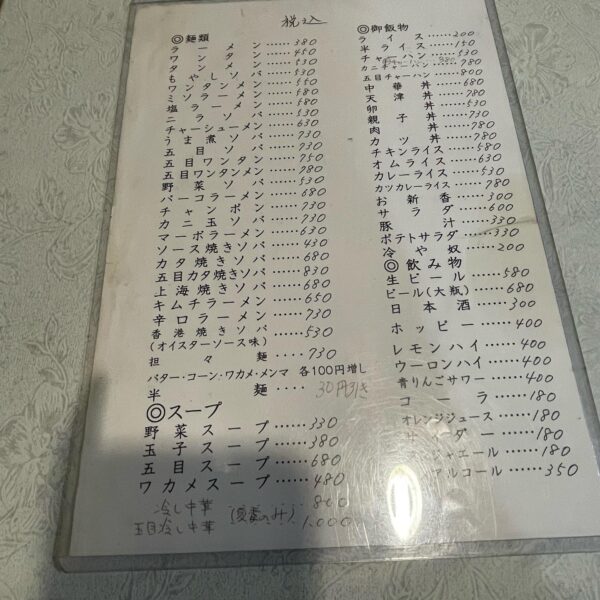 税込
◎麺類
ラーメン……380
ワンタン……450
タンメン……530
もやしソバ……530
ワンタンメン……550
ミソラーメン……580
塩ラーメン……580
ニラソバ……530
チャーシューメン……630
うま煮ソバ……730
五目ソバ……730
五目ワンタン……750
五目ワンタンメン……780
野菜ソバ……530
パーコラーメン……680
チャンポン……730
カニ玉ソバ……730
マーボラーメン……630
ソース焼きソバ……430
カタ焼きソバ……680
五目カタ焼きソバ……830
上海焼きソバ……680
キムチラーメン……650
辛口ラーメン……730
香港焼きソバ……530
(オイスターソース味)
担々麺……730
バター・コーン・ワカメ・メンマ 各100円増し
半麺‥‥30円引き
◎スープ
野菜スープ……330
玉子スープ……380
五目スープ……680
ワカメスープ……480
冷し中華 800
五目冷し中華 (夏季のみ) 1,000
◎御飯物
ライス……200
半ライス……150
チャーハン……530
カニチャーハン 780
五目チャーハン……800
中華丼……680
天津丼……780
卵丼……530
親子丼……680
肉丼……730
カツ丼……780
チキンライス……580
オムライス……630
カレーライス……530
カツカレーライス……780
お新香……300
サラダ……600
豚汁……330
ポテトサラダ……330
冷や奴……200
◎飲み物
生ビール……580
ビール(大瓶)……680
日本酒……300
ホッピー……400
レモンハイ……400
ウーロンハイ……400
青りんごサワー……400
コーラ……180
オレンジジュース……180
サイダー……180
ジャエール……180
アルコール……350